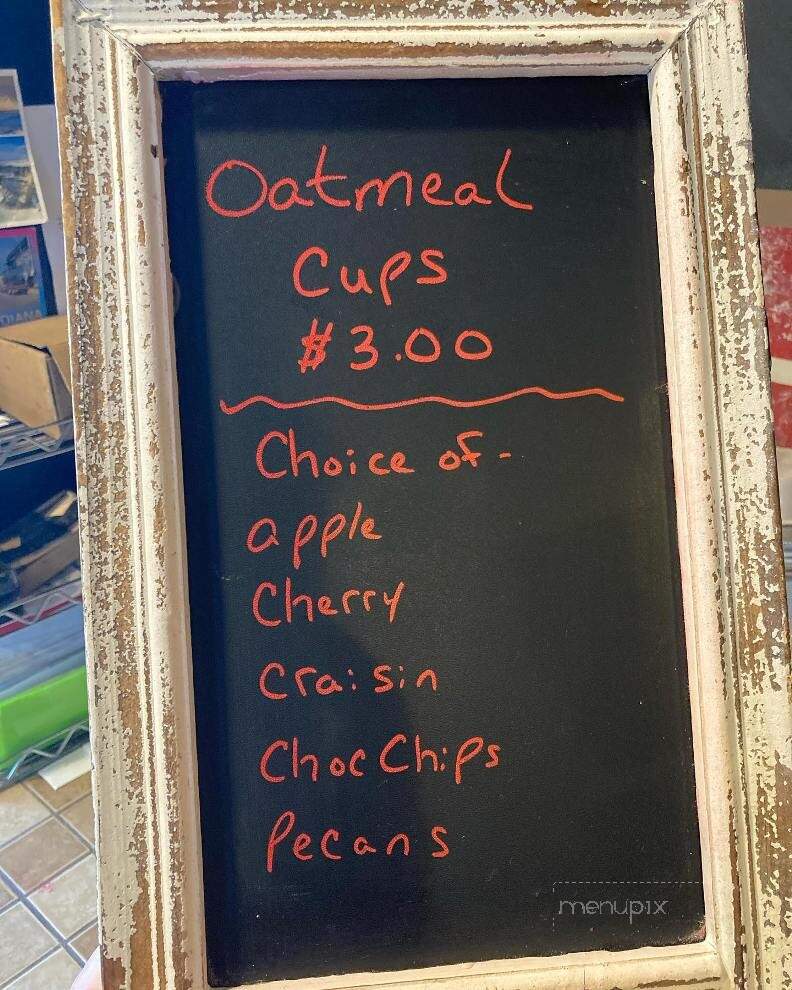 Oatmeal
Cups
$3.00
Choice of -
apple
Cherry
Craisin
Choc Chips
Pecans
menupix
DIANA